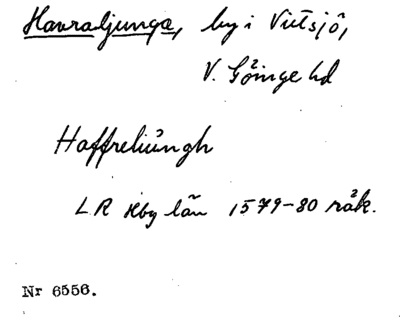 Havraljunga, by i Vittsjö,
V. Göinge hd
Haffreliungh
L.R Hbg län 1579-80 räk.
Nr 6556.